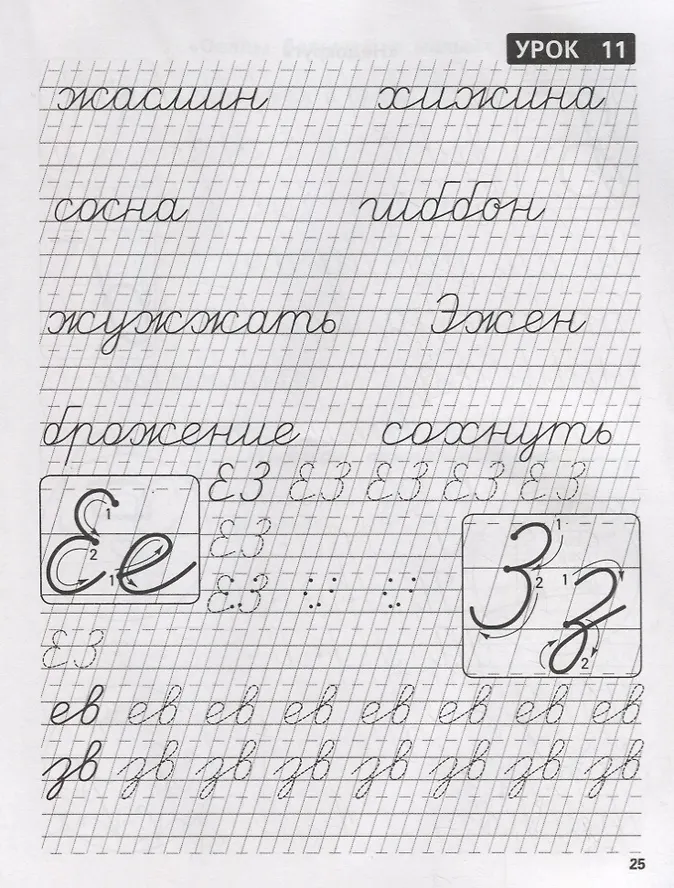 УРОК 11
жасмин хижина
сосна гиббон
жужжать Эжен
брожение сохнуть
ЕЗ ЕЗ ЕЗ ЕЗ ЕЗ
1 2 Е е 1 ЕЗ
1 2 З 1 з 2
ЕЗ
ЕЗ
ев ев ев ев ев ев ев ев
зв зв зв зв зв зв зв зв
25